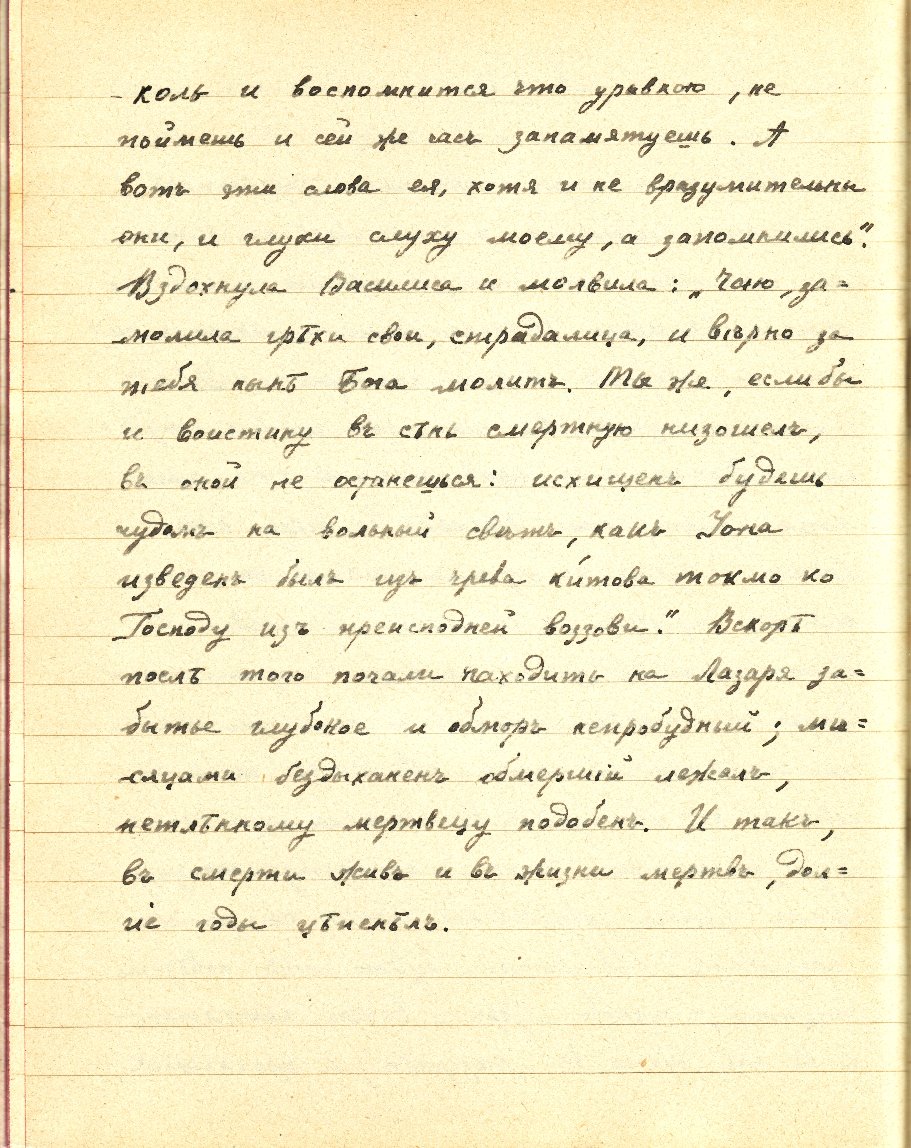 -коль и воспомнится что урывкою, не
поймешь и сей же часъ запамятуешь. А
вотъ эти слова ея, хотя и не вразумительны
они, и глухи слуху моему, а запомнились".
Вздохнула Василиса и молвила: „Чаю, за=
молила грѣхи свои, страдалица, и вѣрно за
тебя нынѣ Бога молитъ. Ты же, если бы
и воистину въ сѣнь смертную низошелъ,
въ оной не останешься: исхищенъ будешь
чудомъ на вольный свѣтъ, какъ Iона
изведенъ былъ изъ чрева ки́това токмо ко
Господу изъ преисподней воззови." Вскорѣ
послѣ того почали находить на Лазаря за=
бытье глубокое и обморъ непробудный; мѣ=
сяцами бездыханенъ обмершiй лежалъ,
нетлѣнному мертвецу подобенъ. И такъ,
въ смерти живъ и въ жизни мертвъ, дол=
гiе годы цѣпенѣлъ.